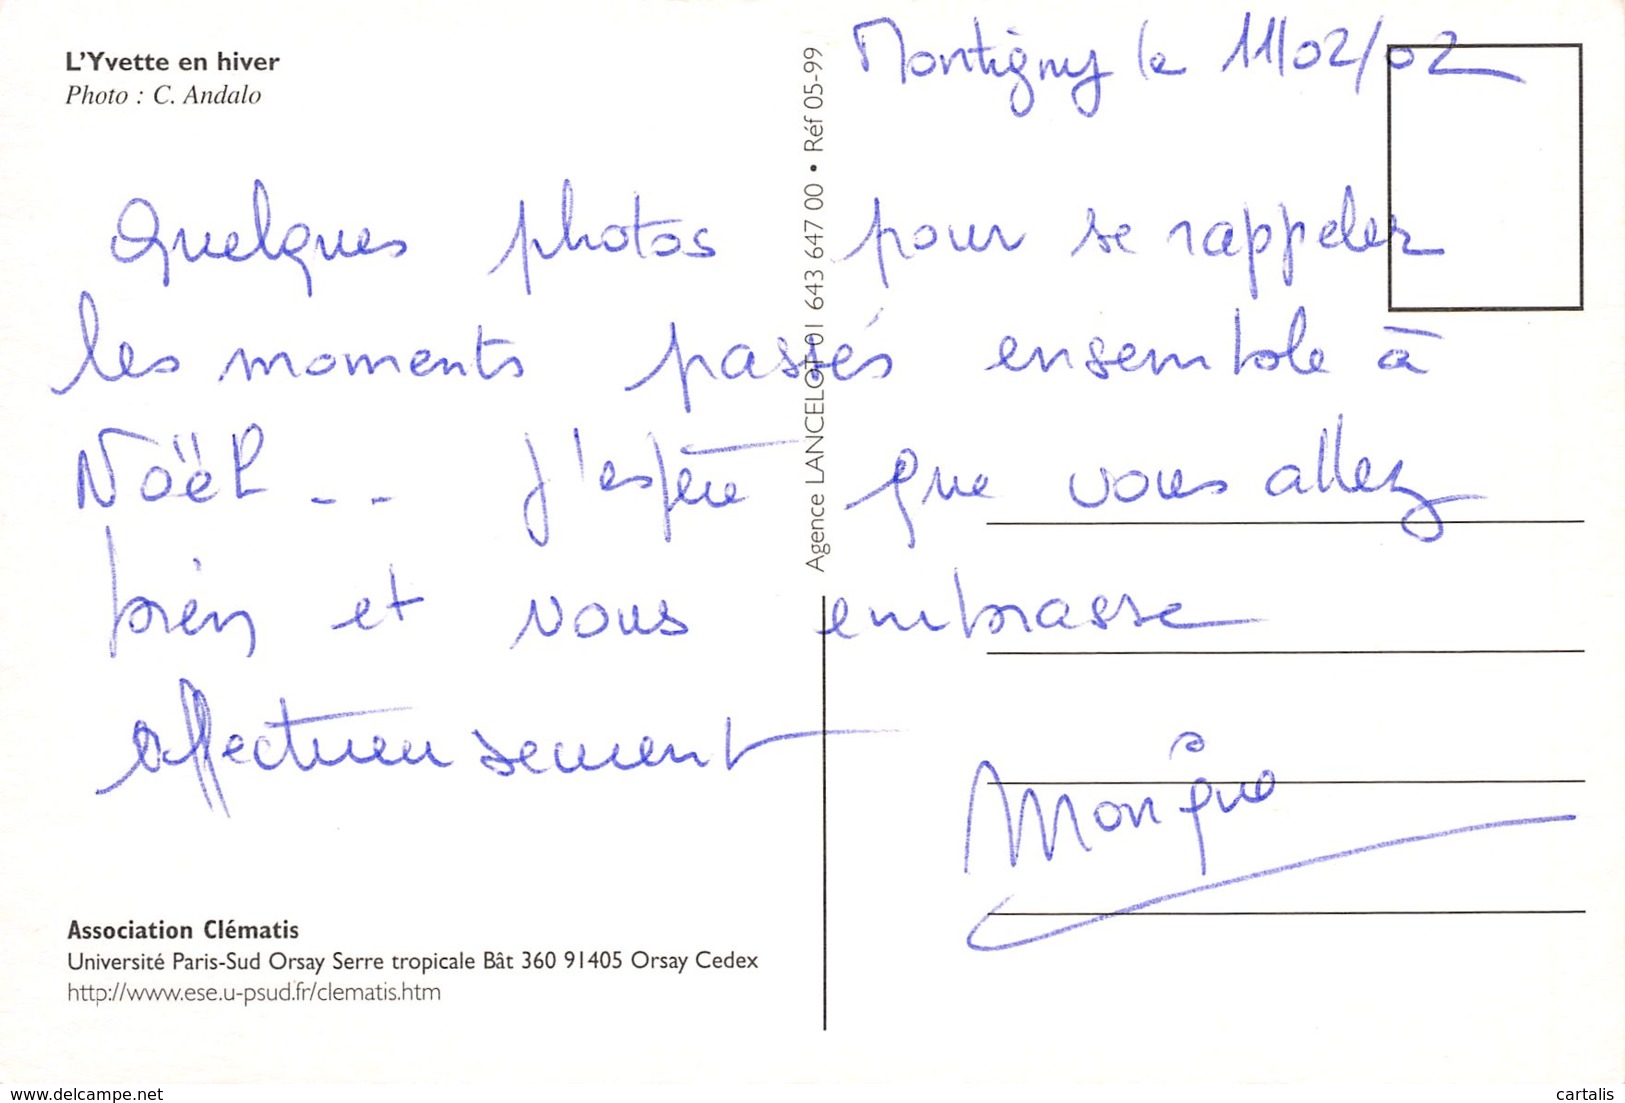 L'Yvette en hiver
Photo : C. Andalo
Montigny le 11/02/02
Quelques photos pour se rappeler
les moments passés ensemble à
Noël .. J'espère que vous allez
bien et vous embrasse
affectueusement
Monique
Agence LANCELOT 01 643 647 00 • Réf 05-99
Association Clématis
Université Paris-Sud Orsay Serre tropicale Bât 360 91405 Orsay Cedex
http://www.ese.u-psud.fr/clematis.htm
delcampe.net
cartalis